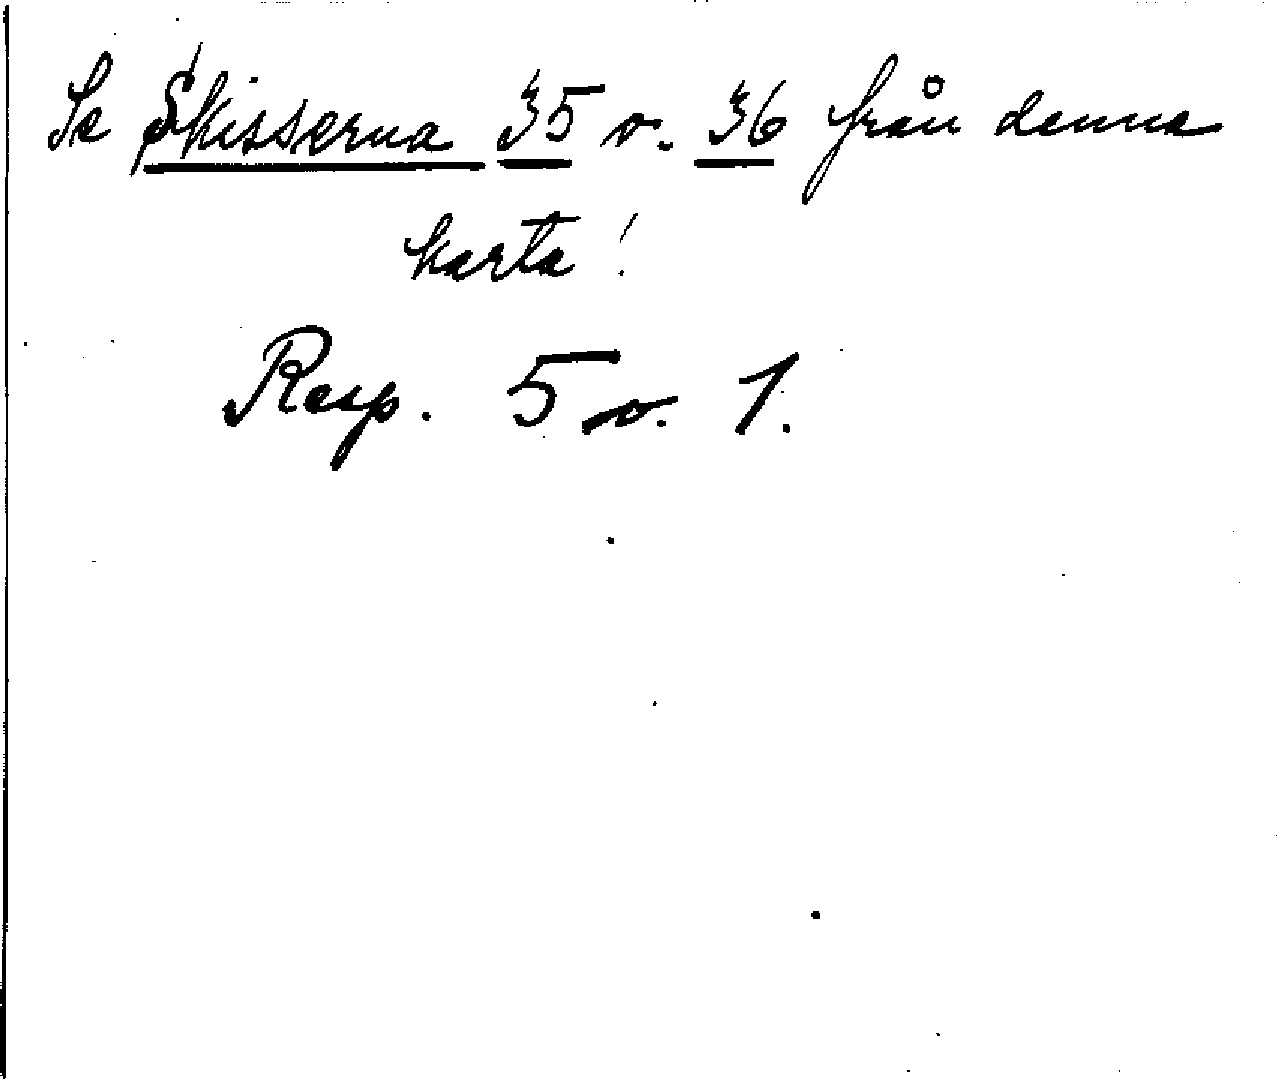 Se Skisserna 35 o. 36 från denna
karta!
Resp. 5 o. 1.